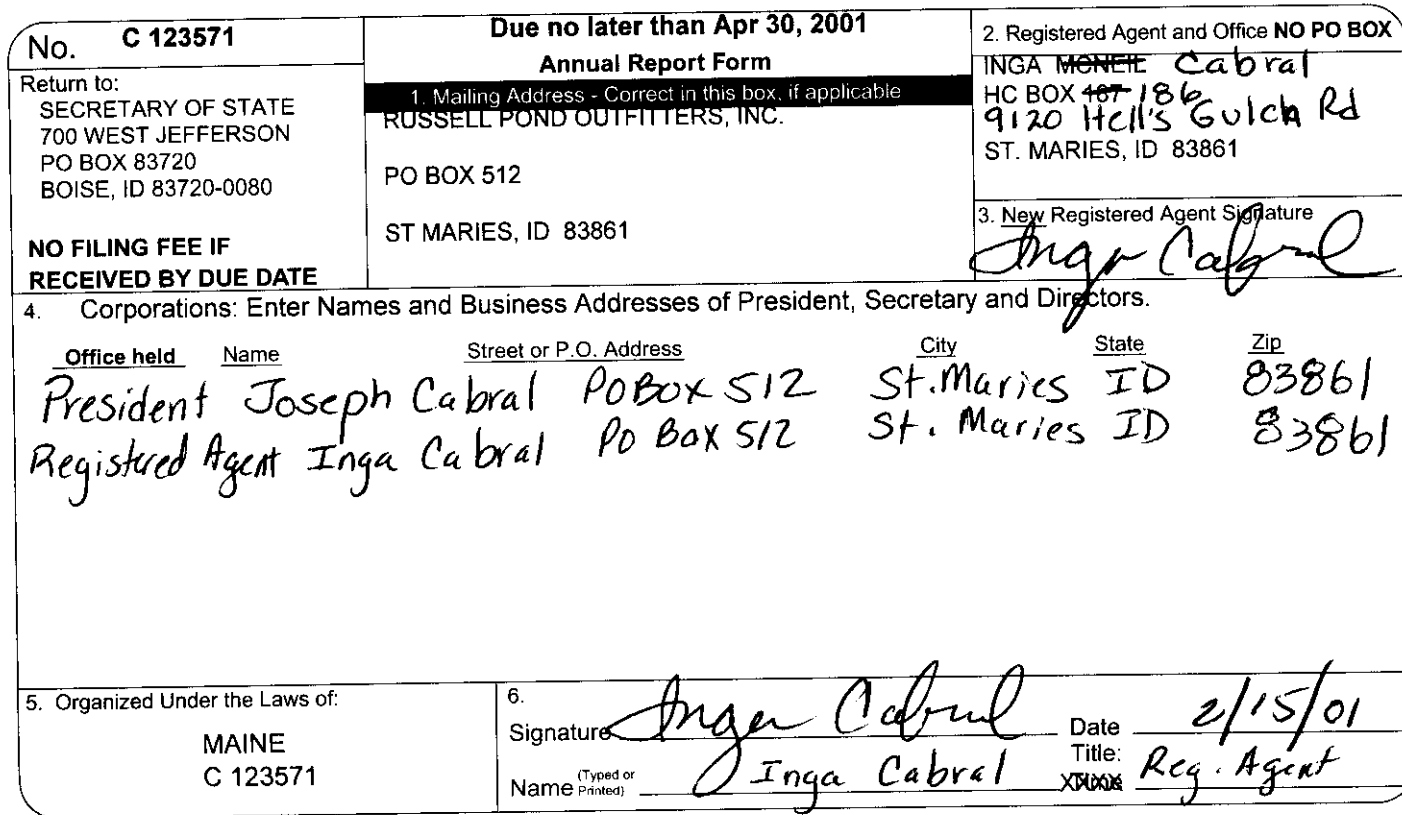 No. C 123571
Return to:
SECRETARY OF STATE
700 WEST JEFFERSON
PO BOX 83720
BOISE, ID 83720-0080
NO FILING FEE IF
RECEIVED BY DUE DATE
Due no later than Apr 30, 2001
Annual Report Form
1. Mailing Address - Correct in this box, if applicable
RUSSELL POND OUTFITTERS, INC.
PO BOX 512
ST MARIES, ID 83861
2. Registered Agent and Office NO PO BOX
INGA MCNEIL Cabral
HC BOX 187 186
9120 Hell's Gulch Rd
ST. MARIES, ID 83861
3. New Registered Agent Signature
Inga Cabral
4. Corporations: Enter Names and Business Addresses of President, Secretary and Directors.
Office held Name Street or P.O. Address City State Zip
President Joseph Cabral PO Box 512 St. Maries ID 83861
Registered Agent Inga Cabral PO Box 512 St. Maries ID 83861
5. Organized Under the Laws of:
MAINE
C 123571
6.
Signature Inga Cabral Date 2/15/01
Name (Typed or Printed) Inga Cabral Title: Reg. Agent